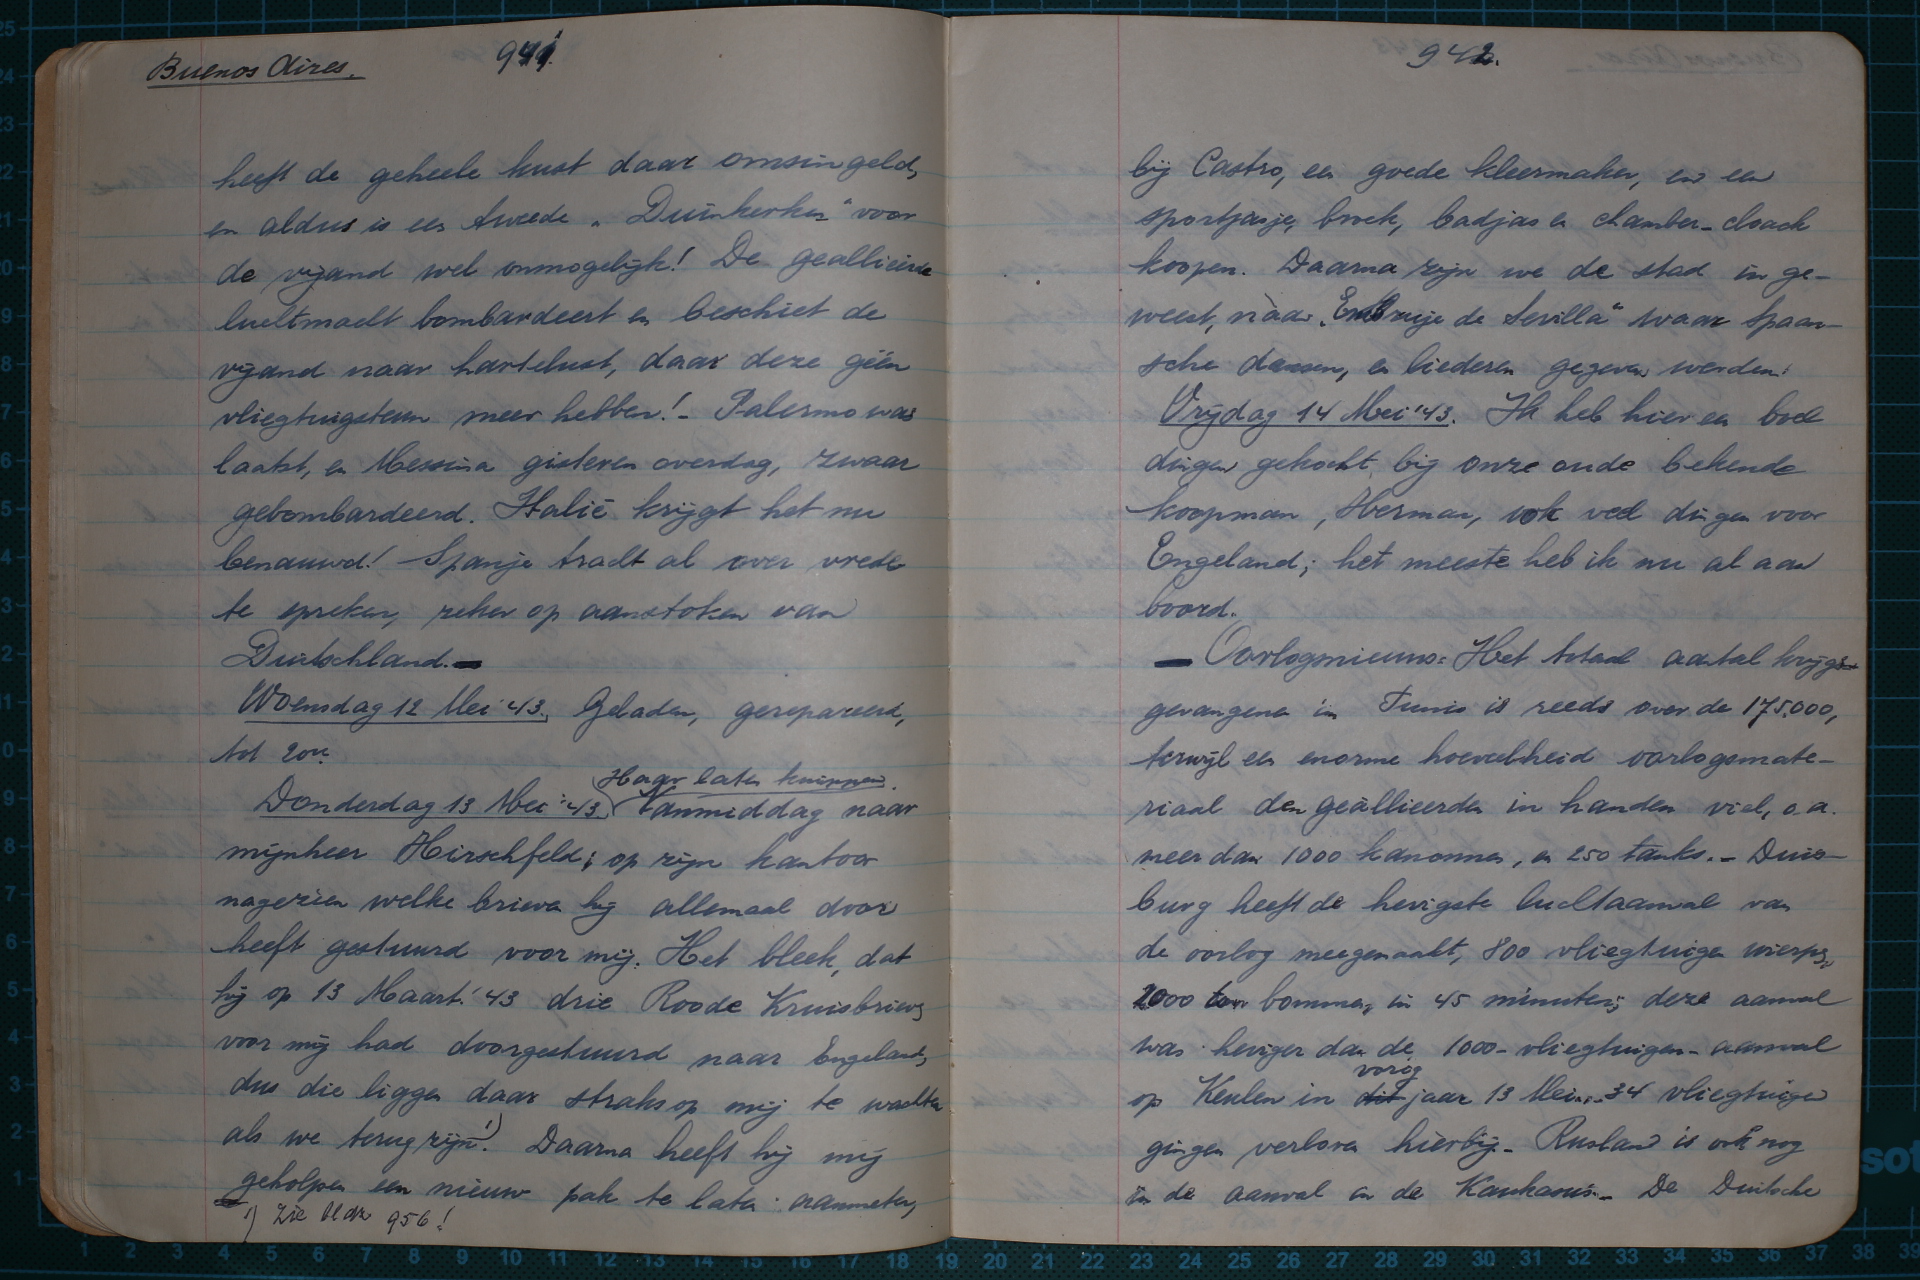 Buenos Aires.
941.
heeft de geheele kust daar omsingeld,
en aldus is een tweede „Duinkerken" voor
de vijand wel onmogelijk! De geallieerde
luchtmacht bombardeert en beschiet de
vijand naar hartelust, daar deze géén
vliegtuigsteun meer hebben! - Palermo was
laatst, en Messina gisteren overdag, zwaar
gebombardeerd. Italië krijgt het nu
benauwd! Spanje tracht al over vrede
te spreken, zeker op aanstoken van
Duitschland.
Woensdag 12 Mei '43. Geladen, gerepareerd,
tot 20u.
Haar laten knippen.
Donderdag 13 Mei '43. Vanmiddag naar
mijnheer Hirschfeld; op zijn kantoor
nagezien welke brieven hij allemaal door
heeft gestuurd voor mij. Het bleek, dat
hij op 13 Maart '43 drie Roode Kruisbrieven
voor mij had doorgestuurd naar Engeland,
dus die liggen daar straks op mij te wachten
als we terug zijn! ¹) Daarna heeft hij mij
geholpen een nieuw pak te laten aanmeten,
¹) Zie bldz 956!
942.
bij Castro, een goede kleermaker, en een
sportjasje, broek, badjas en chamber-cloack
koopen. Daarna zijn we de stad in ge-
weest, naar „Embruje de Sevilla" waar Spaan-
sche dansen, en liederen gegeven werden.
Vrijdag 14 Mei '43. Ik heb hier een boel
dingen gekocht, bij onze oude bekende
koopman, Herman, ook veel dingen voor
Engeland; het meeste heb ik nu al aan
boord.
— Oorlogsnieuws: Het totaal aantal krijgs-
gevangenen in Tunis is reeds over de 175.000,
terwijl een enorme hoeveelheid oorlogsmate-
riaal den geällieerden in handen viel, o.a.
meer dan 1000 kanonnen, en 250 tanks. - Duis-
burg heeft de hevigste luchtaanval van
de oorlog meegemaakt, 800 vliegtuigen wierpen
2000 ton bommen, in 45 minuten; deze aanval
was heviger dan de 1000-vliegtuigen-aanval
vorig
op Keulen in dit jaar 13 Mei. 34 vliegtuigen
gingen verloren hierbij. - Rusland is ook nog
in de aanval in de Kaukasus. - De Duitsche